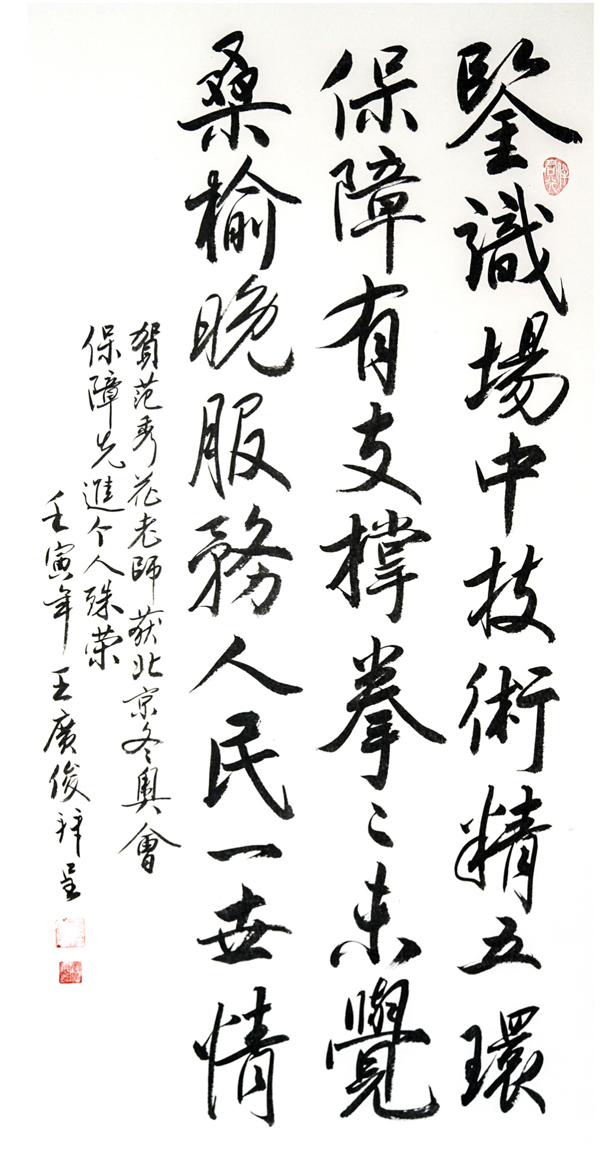 鑒識場中技術精五環
保障有支撑拳〻未覺
桑榆晚服務人民一世情
賀范秀花老師获北京冬奥會
保障先進个人殊荣
壬寅年王廣俊拜呈